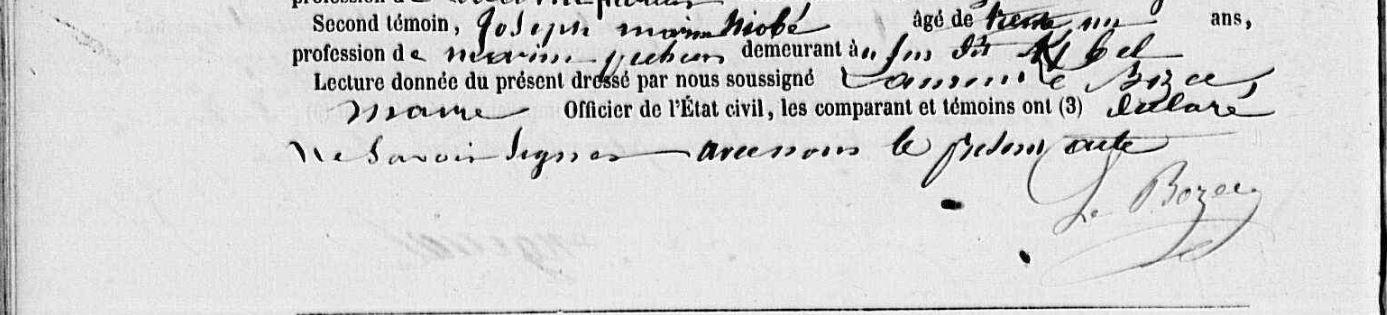 Second témoin, Joseph marie Niobé âgé de trente un ans,
profession de marin pecheur demeurant à
Lecture donnée du présent dressé par nous soussigné Laurent Le Bozec,
maire Officier de l'État civil, les comparant et témoins ont (3) déclaré
ne Savoir Signer avec nous le présent acte
Le Bozec